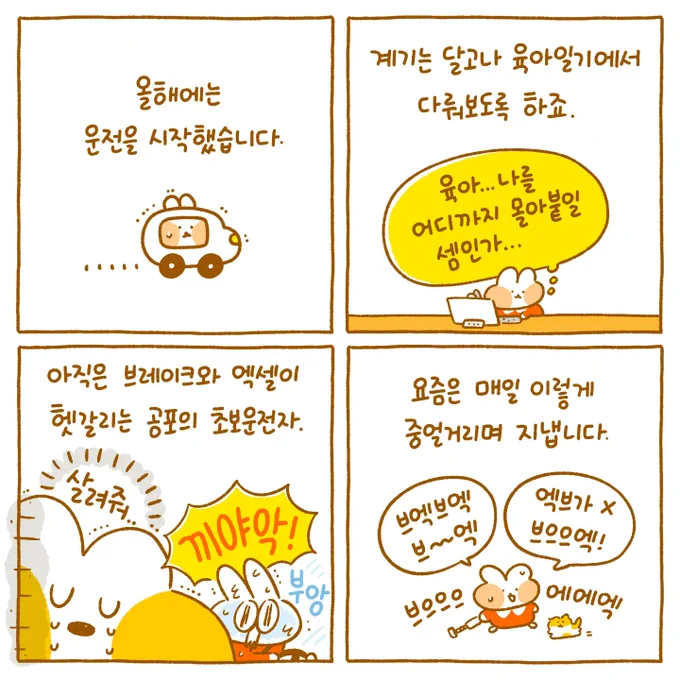 올해에는
운전을 시작했습니다.
계기는 달고나 육아일기에서
다뤄보도록 하죠.
육아...나를
어디까지 몰아붙일
셈인가...
아직은 브레이크와 엑셀이
헷갈리는 공포의 초보운전자.
살려줘..
끼야악!
부앙
요즘은 매일 이렇게
중얼거리며 지냅니다.
브엑브엑
브~~엑
엑브가 x
브으으엑!
브으으으
에에엑